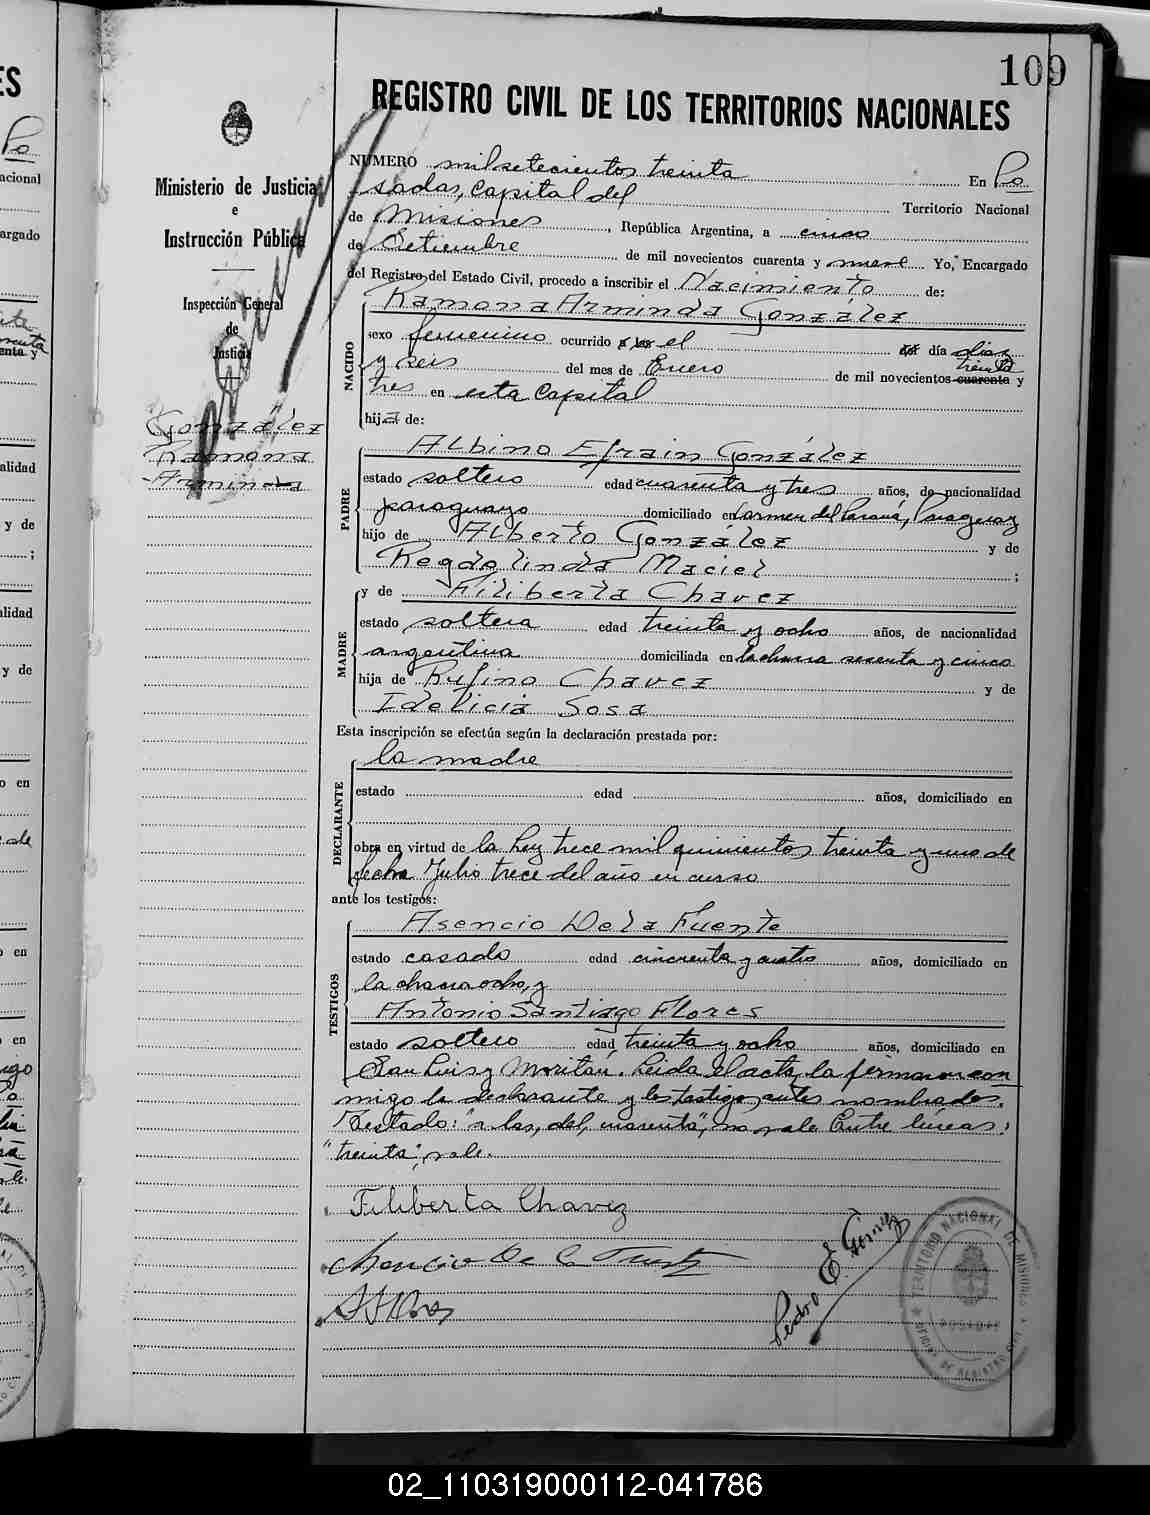 109
REGISTRO CIVIL DE LOS TERRITORIOS NACIONALES
Ministerio de Justicia
e
Instrucción Pública
Inspección General
de
Justicia
González
Ramona
Arminda
NUMERO mil setecientos treinta En Po
sadas, Capital del Territorio Nacional
de Misiones, República Argentina, a cinco
de Setiembre de mil novecientos cuarenta y nueve Yo, Encargado
del Registro del Estado Civil, procedo a inscribir el Nacimiento de:
Ramona Arminda González
NACIDO
sexo femenino ocurrido a las el del día diez
y seis del mes de Enero de mil novecientos cuarenta treinta y
tres en esta Capital
hija de:
PADRE
Albino Efrain González
estado soltero edad cuarenta y tres años, de nacionalidad
paraguayo domiciliado en Carmen del Paraná, Paraguay
hijo de Alberto González y de
Regdelinda Maciel ;
MADRE
y de Filiberta Chavez
estado soltera edad treinta y ocho años, de nacionalidad
argentina domiciliada en la chacra sesenta y cinco
hija de Rufino Chavez y de
Idelicia Sosa
Esta inscripción se efectúa según la declaración prestada por:
DECLARANTE
la madre
estado edad años, domiciliado en
obra en virtud de la Ley trece mil quinientos treinta y uno de
fecha Julio trece del año en curso
ante los testigos:
TESTIGOS
Asencio De la Fuente
estado casado edad cincuenta y cuatro años, domiciliado en
la chacra ocho, y
Antonio Santiago Flores
estado soltero edad treinta y ocho años, domiciliado en
San Luis y Moritán. Leída el acta, la firmaron con
migo la declarante y los testigos antes nombrados.
Testado: "a las, del, cuarenta", no vale Entre líneas:
"treinta", vale.
Filiberta Chavez
Asencio De la Fuente
Pedro E. Gómez
TERRITORIO NACIONAL DE MISIONES
POSADAS
02_110319000112-041786